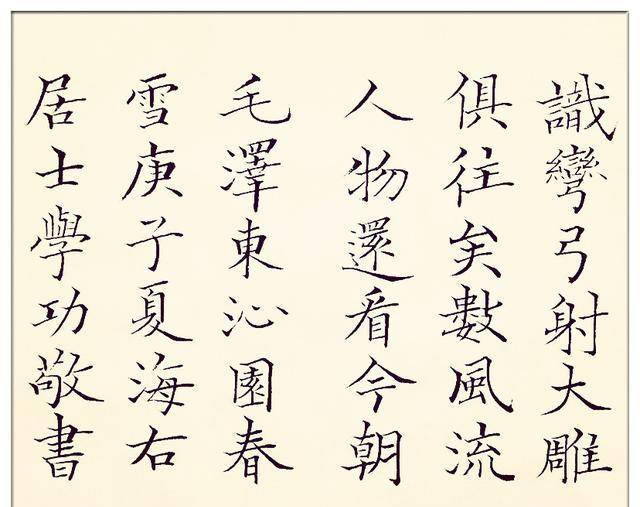 識彎弓射大雕
俱往矣數風流
人物還看今朝
毛澤東沁園春
雪庚子夏海右
居士學功敬書